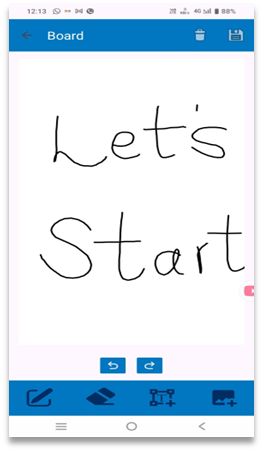 12:13 4G 88%
Board
Let's
Start